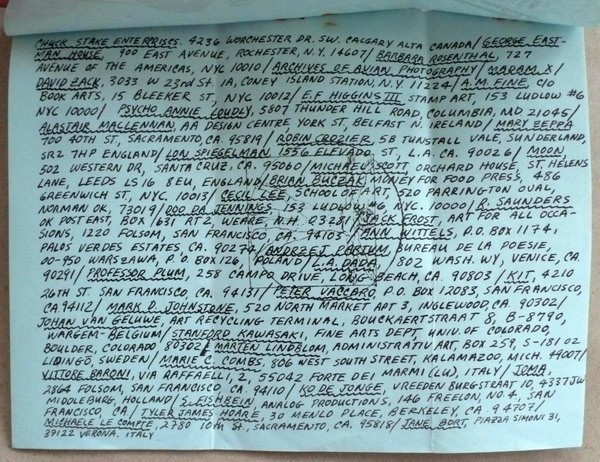 CHUCK STAKE ENTERPRISES. 4236 WORCHESTER DR. SW. CALGARY ALTA CANADA / GEORGE EAST-
MAN HOUSE, 900 EAST AVENUE, ROCHESTER, N.Y. 14607 / BARBARA ROSENTHAL, 727
AVENUE OF THE AMERICAS, NYC 10010 / ARCHIVES OF AVIAN PHOTOGRAPHY / MADAM X /
DAVID ZACK, 3033 W 23rd St. 1A, CONEY ISLAND STATION, N.Y. 11224 / A.M. FINE, C/O
BOOK ARTS, 15 BLEEKER ST, NYC 10012 / E.F. HIGGINS III STAMP ART, 153 LUDLOW #6
NYC 10000 / PSYCHO ANNIE GOUDLY, 5807 THUNDER HILL ROAD, COLUMBIA, MD 21045 /
ALASTAIR MACLENNAN, AA DESIGN CENTRE YORK ST, BELFAST N. IRELAND / MARY BEPPA
700 40TH ST, SACRAMENTO, CA. 95819 / ROBIN CROZIER, 5B TUNSTALL VALE, SUNDERLAND,
SR2 7HP ENGLAND / LON SPIEGELMAN 1556 ELEVADO ST, L.A. CA. 90026 / MOON
502 WESTERN DR, SANTA CRUZ, CA. 95060 / MICHAEL SCOTT ORCHARD HOUSE, ST HELENS
LANE, LEEDS LS 16 8EU, ENGLAND / BRIAN BUCZAK, MONEY FOR FOOD PRESS, 486
GREENWICH ST, NYC. 10013 / CECIL LEE SCHOOL OF ART, 520 PARRINGTON OVAL,
NORMAN OK, 73019 / OOO DA JENNINGS, 153 LUDLOW #6, NYC, 10000 / R. SAUNDERS
OK POST EAST, BOX 1631, WEARE, N.H. 03281 / JACK FROST, ART FOR ALL OCCA-
SIONS, 1220 FOLSOM, SAN FRANCISCO, CA. 94103 / ANN WITTELS, P.O. BOX 1174,
PALOS VERDES ESTATES, CA. 90274 / ANDRZEJ PARTUM, BUREAU DE LA POESIE,
00-950 WARSZAWA, P.O. BOX 126, POLAND / L.A. DADA, 1802 WASH. WY, VENICE, CA.
90291 / PROFESSOR PLUM, 258 CAMPO DRIVE, LONG BEACH, CA. 90803 / KIT, 4210
26TH ST. SAN FRANCISCO, CA. 94131 / PETER VACCARO, P.O. BOX 12083, SAN FRANCISCO,
CA 94112 / MARK D. JOHNSTONE, 520 NORTH MARKET APT 3, INGLEWOOD, CA. 90302 /
JOHAN VAN GELUWE, ART RECYCLING TERMINAL, BOUCKAERTSTRAAT 8, B-8790,
WAREGEM-BELGIUM / STANFORD KAWASAKI, FINE ARTS DEPT, UNIV. OF COLORADO,
BOULDER, COLORADO 80302 / MARTEN LINDBLOM, ADMINISTRATIV ART, BOX 259, S-181 02
LIDINGÖ, SWEDEN / MARIE C. COMBS, 806 WEST SOUTH STREET, KALAMAZOO, MICH. 49007 /
VITTORE BARONI, VIA RAFFAELLI, 2, 55042 FORTE DEI MARMI (LU), ITALY / JOMA,
2864 FOLSOM, SAN FRANCISCO, CA. 94110 / KO DE JONGE, VREEDENBURGSTRAAT 10, 4337JW
MIDDLEBURG, HOLLAND / S. FISHBEIN, ANALOG PRODUCTIONS, 146 FREELON, NO. 4, SAN
FRANCISCO, CA / TYLER JAMES HOARE, 30 MENLO PLACE, BERKELEY, CA. 94707 /
MICHAELE LE COMPTE, 2780 10TH ST., SACRAMENTO, CA. 95818 / JANE BORT, PIAZZA SIMONI 31,
37122 VERONA, ITALY